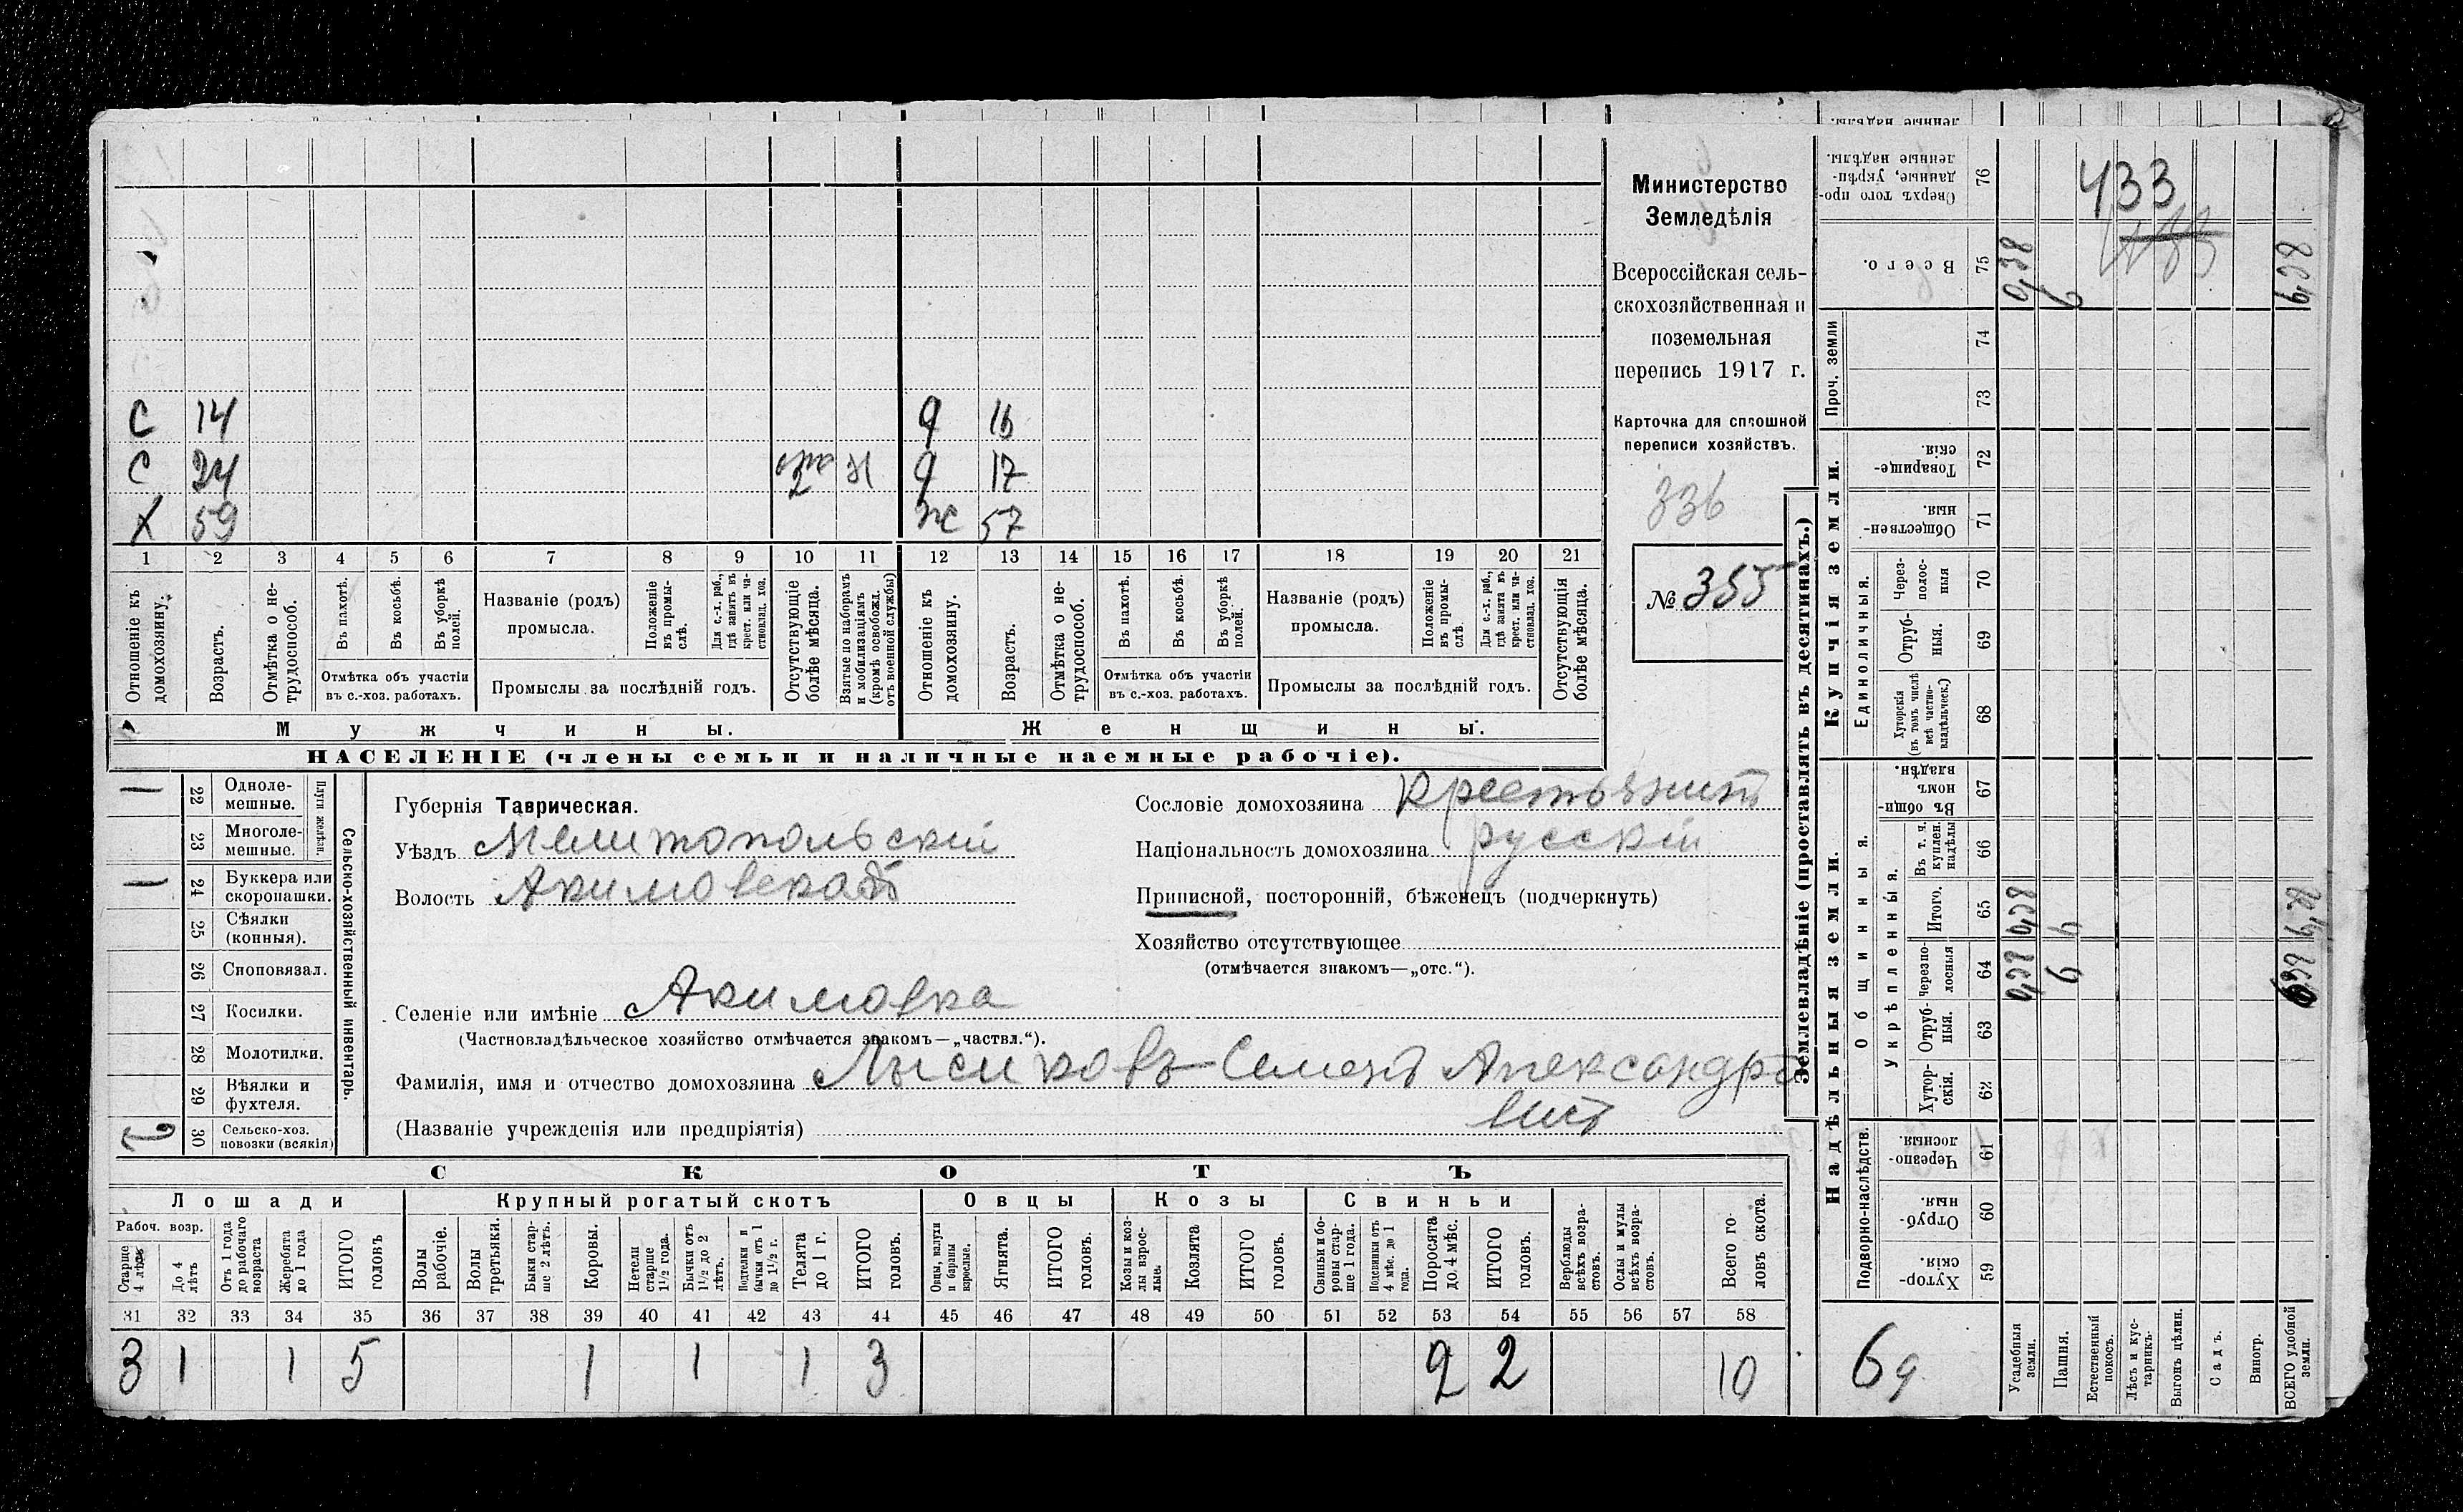 Министерство
Земледѣлія
Всероссійская сель-
скохозяйственная и
поземельная
перепись 1917 г.
Карточка для сплошной
переписи хозяйствъ.
336
№ 355
С 14 д 16
С 24 2 д 17
Х 59 ж 57
1 2 3 4 5 6 7 8 9 10 11 12 13 14 15 16 17 18 19 20 21
Отношеніе къ домохозяину.
Возрастъ.
Отмѣтка о не-трудоспособ.
Въ пахотѣ.
Въ косьбѣ.
Въ уборкѣ полей.
Отмѣтка объ участіи
въ с.-хоз. работахъ.
Названіе (родъ)
промысла.
Положеніе въ промы-слѣ.
Для с.-х. раб., гдѣ занятъ въ крест. или ча-стновлад. хоз.
Промыслы за послѣдній годъ.
Отсутствующіе болѣе мѣсяца.
Взятые по наборамъ и мобилизаціямъ (кромѣ освобожд. отъ военной службы)
Отношеніе къ домохозяину.
Возрастъ.
Отмѣтка о не-трудоспособ.
Въ пахотѣ.
Въ косьбѣ.
Въ уборкѣ полей.
Отмѣтка объ участіи
въ с.-хоз. работахъ.
Названіе (родъ)
промысла.
Положеніе въ промы-слѣ.
Для с.-х. раб., гдѣ занята въ крест. или ча-стновлад. хоз.
Промыслы за послѣдній годъ.
Отсутствующія болѣе мѣсяца.
Мужчины. Женщины.
НАСЕЛЕНІЕ (члены семьи и наличные наемные рабочіе).
Сельско-хозяйственный инвентарь.
Плуги желѣзн.
1 22 Одноле-мешные.
23 Многоле-мешные.
1 24 Буккера или скоропашки.
25 Сѣялки (конныя).
26 Сноповязал.
27 Косилки.
28 Молотилки.
29 Вѣялки и фухтеля.
2 30 Сельско-хоз. повозки (всякія)
Губернія Таврическая.
Уѣздъ Мелитопольскій
Волость Акимовская
Селеніе или имѣніе Акимовка
(Частновладѣльческое хозяйство отмѣчается знакомъ—„частвл.“).
Фамилія, имя и отчество домохозяина Лысиковъ Семенъ Александро
вичъ
(Названіе учрежденія или предпріятія)
Сословіе домохозяина Крестьянинъ
Національность домохозяина русскій
Приписной, посторонній, бѣженецъ (подчеркнуть)
Хозяйство отсутствующее
(отмѣчается знакомъ—„отс.“).
СКОТЪ
Лошади Крупный рогатый скотъ Овцы Козы Свиньи
Рабоч. возр.
Старше 4 лѣтъ
До 4 лѣтъ
Отъ 1 года до рабочаго возраста
Жеребята до 1 года
ИТОГО головъ
Волы рабочіе.
Волы третьяки.
Быки стар-ше 2 лѣтъ.
Коровы.
Нетели старше 1½ года.
Бычки отъ 1½ до 2 лѣтъ.
Подтелки и бычки отъ 1 до 1½ г.
Телята до 1 г.
ИТОГО головъ.
Овцы, валухи и бараны взрослые.
Ягнята.
ИТОГО головъ.
Козы и коз-лы взрос-лые.
Козлята
ИТОГО головъ.
Свиньи и бо-ровы стар-ше 1 года.
Подсвинки отъ 4 мѣс. до 1 года.
Поросята до 4 мѣс.
ИТОГО головъ.
Верблюды всѣхъ возра-стовъ.
Ослы и мулы всѣхъ возра-стовъ.
Всего го-ловъ скота.
31 32 33 34 35 36 37 38 39 40 41 42 43 44 45 46 47 48 49 50 51 52 53 54 55 56 57 58
3 1 1 5 1 1 1 3 2 2 10
Землевладѣніе (проставлять въ десятинахъ.)
Надѣльныя земли. Купчія земли. Проч. земли
Подворно-наслѣдств.
Общинныя.
Укрѣпленныя.
Единоличныя.
76 Сверхъ того про-данные, укрѣп-ленные надѣлы.
75 Всего. 0,38 6 6,38
74
73
72 Товарище-скія
71 Обществен-ныя.
70 Через-полос-ныя
69 Отруб-ныя.
68 Хуторскія (въ томъ числѣ всѣ частно-владѣльческ.)
67 Въ общин-номъ владѣн.
66 Въ т. ч. куплен. надѣлы
65 Итого. 0,38
64 Черезпо-лосныя 0,38 6 6,38
63 Отруб-ныя.
62 Хутор-скія.
61 Черезпо-лосныя.
60 Отруб-ныя.
59 Хутор-скія.
Усадебныя земли.
Пашня.
Естественный покосъ.
Лѣсъ и кус-тарникъ.
Выгонъ цѣлин.
Садъ.
Виногр.
ВСЕГО удобной земли.
433